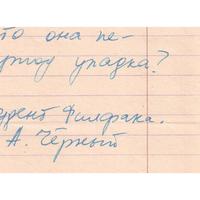 то она пе-
риод упадка?
удент Филфака.
А. Чёрный